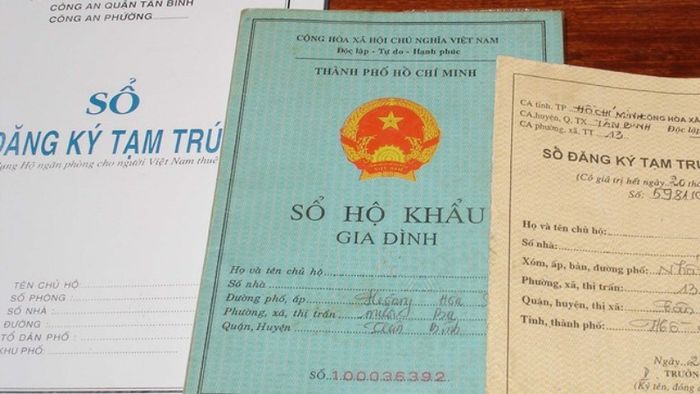 CÔNG AN QUẬN TÂN BÌNH
CÔNG AN PHƯỜNG:
SỔ
ĐĂNG KÝ TẠM TRÚ
Hộ ngăn phòng cho người Việt Nam thuê
TÊN CHỦ HỘ
SỐ PHÒNG :
SỐ NHÀ :
ĐƯỜNG :
TỔ DÂN PHỐ :
KHU PHỐ:
CỘNG HÒA XÃ HỘI CHỦ NGHĨA VIỆT NAM
Độc lập - Tự do - Hạnh phúc
THÀNH PHỐ HỒ CHÍ MINH
VIỆT NAM
SỔ HỘ KHẨU
GIA ĐÌNH
Họ và tên chủ hộ
Số nhà
Đường phố, ấp
Phường, xã, thị trấn mười Ba
Quận, Huyện Tân Bình
SỐ 100036392
CA tỉnh, TP HỒ CHÍ MINH CỘNG HÒA XÃ
CA huyện, Q, TX TÂN BÌNH Độc lập
CA phường, xã, TT 13
SỔ ĐĂNG KÝ TẠM TRÚ
(Có giá trị hết ngày 20
Số:
Họ và tên chủ hộ:
Số nhà:
Xóm, ấp, bản, đường phố:
Phường, xã, thị trấn: 13
Quận, huyện, thị xã: Tân
Tỉnh, thành phố: Hồ
Ngày 2
TRƯỞN
(Ký tên, đóng